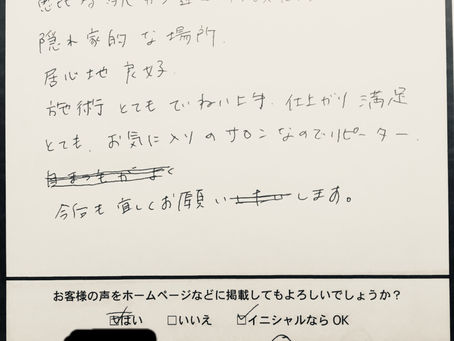 隠れ家的な場所.
居心地良好.
施術とてもていねい上手.仕上がり満足
とても、お気に入りのサロンなのでリピーター.
今后も宜しくお願いします。
お客様の声をホームページなどに掲載してもよろしいでしょうか？
はい □いいえ ☑イニシャルならOK